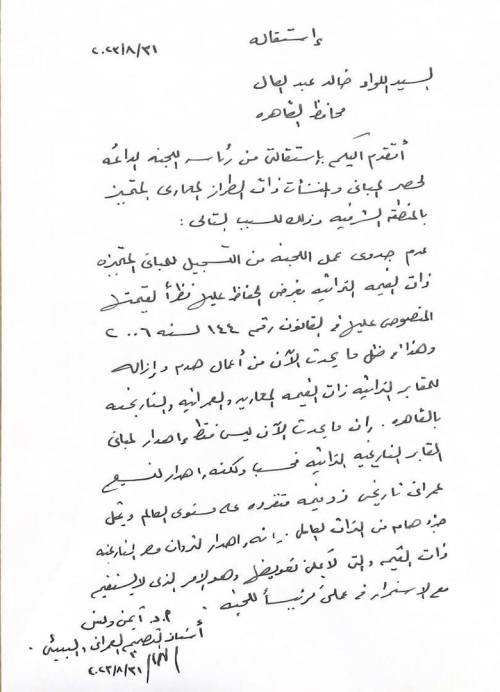 إستقاله
٢٠٢٣/٨/٣١
السيد اللواء خالد عبد العال
محافظ القاهره
أتقدم اليكم بإستقالتى من رئاسه اللجنه الدائمه
لحصر المبانى والمنشآت ذات الطراز المعمارى المتميز
بالمنطقه الشرقيه وذلك للسبب التالى :
عدم جدوى عمل اللجنه من التسجيل للمبانى المتميزه
ذات القيمه التراثيه بغرض الحفاظ عليها نظراً لقيمتها
المنصوص عليها فى القانون رقم ١٤٤ لسنه ٢٠٠٦
وهذا فى ظل ما يحدث الآن من أعمال هدم وإزاله
للمقابر التراثيه ذات القيمه المعماريه والعمرانيه والتاريخيه
بالقاهره . إن ما يحدث الآن ليس فقط إهدار لمبانى
المقابر التاريخيه التراثيه فحسب ولكنه إهدار لنسيج
عمرانى تاريخى ذو قيمه متفرده على مستوى العالم ويمثل
جزء هام من التراث العالمى . إنه إهدار لثروات مصر التاريخيه
ذات القيمه والتى لا يمكن تعويضها وهو الامر الذى لا يستقيم
مع الاستمرار فى عملى كرئيساً للجنه .
أ.د. أيمن ونس
أستاذ التصميم العمرانى والبيئى .
٢٠٢٣/٨/٣١